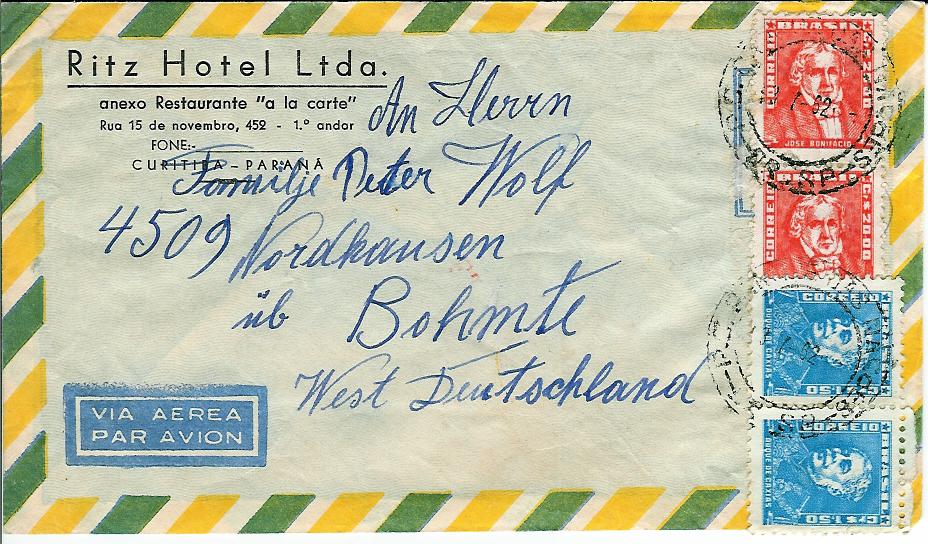 Ritz Hotel Ltda.
anexo Restaurante "a la carte"
Rua 15 de novembro, 452 - 1.º andar
FONE:-
CURITIBA - PARANÁ
An Herrn
Familje Peter Wolf
4509 Nordhausen
üb Bohmte
West Deutschland
VIA AEREA
PAR AVION
BRASIL
CORREIO
JOSÉ BONIFÁCIO
CORREIO
Cr$ 20,00
CORREIO
DUQUE DE CAXIAS
1,50
CORREIO
BRASIL
DUQUE DE CAXIAS
Cr$ 1,50